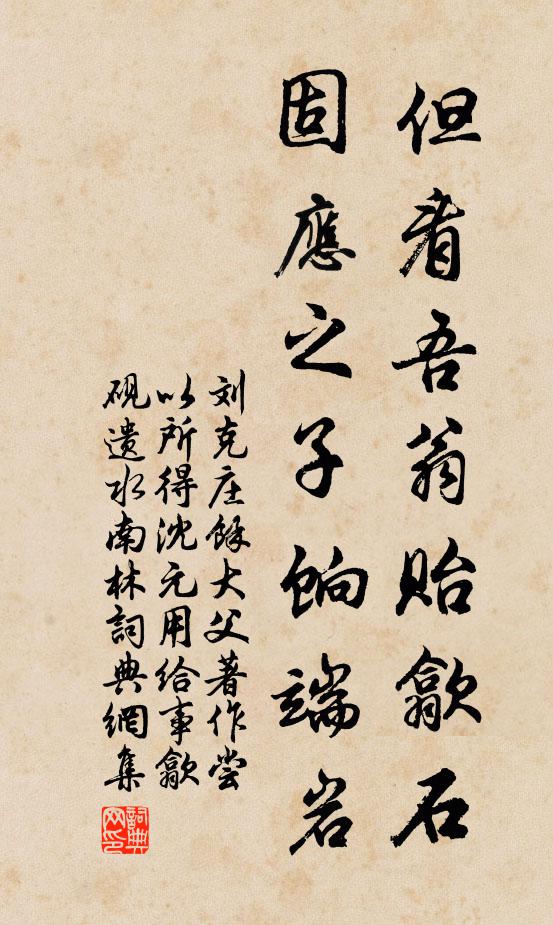 但看吾翁贻歙石
固應之子餉端岩
刘克庄餘大父著作尝
以所得沈元用给事歙
砚遗水南林詞典網集
詞典网印